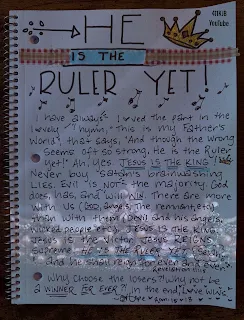 HE
©HKLB
YouTube
IS THE
RULER YET!
I have always loved the part in the
lovely hymn, "This is my Father's
World", that says, "And though the wrong
seems oft so strong, He is the Ruler
Yet!" Ah, yes. JESUS IS THE KING!
Never buy satan's brainwashing
LIES. EVIL IS NOT the majority. God
does, has, and will WIN. There are more
with us (GOD, angels, The remnant, etc)
than with them (devil and his angels,
wicked people etc). JESUS IS THE KING
Jesus is the Victor. JESUS REIGNS
Supreme. HE IS THE RULER YET (Selah)
and he shall reign for ever and ever.
Revelation 11:15
Why choose the losers? Why not be
a WINNER FOR EVER?! In the end, LOVE WINS